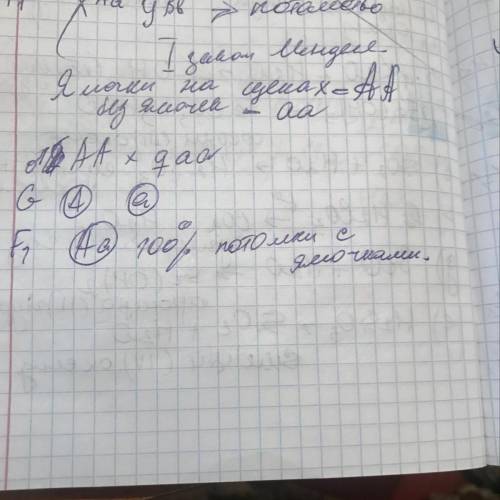 На ♀ Вв => потомство
I закон Менделя
Ямочки на щеках = АА
без ямочек - аа
АА × ♀ аа
G А а
F₁ Аа 100% потомки с
ямочками.